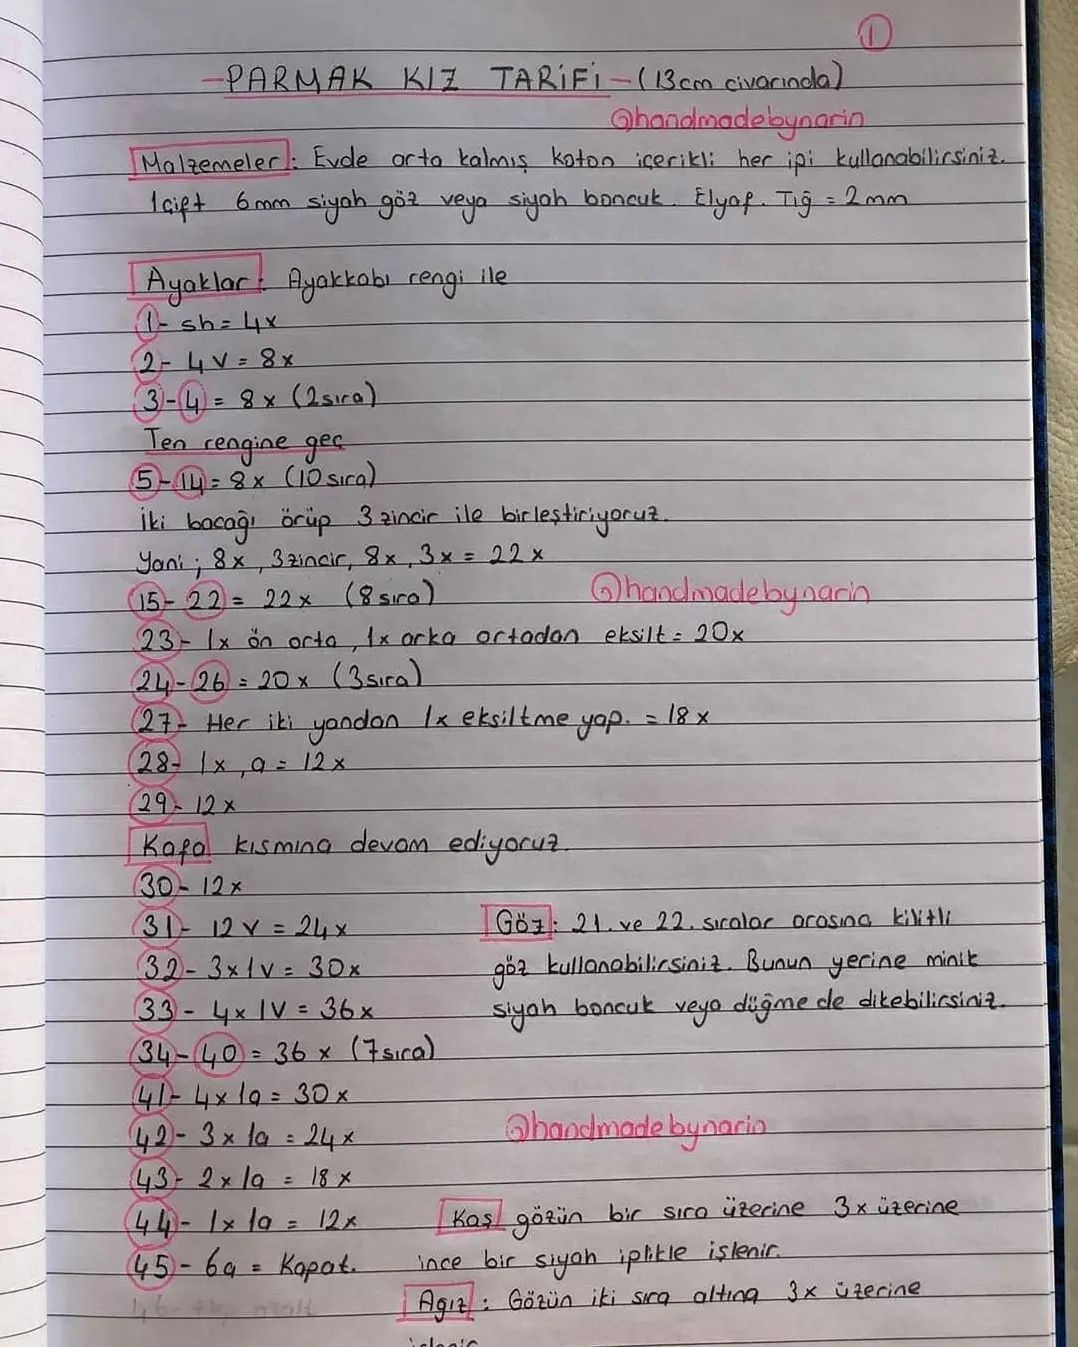 1
-PARMAK KIZ TARİFİ-(13cm civarında)
@handmadebynarin
Malzemeler: Evde arta kalmış koton içerikli her ipi kullanabilirsiniz.
1 çift 6mm siyah göz veya siyah boncuk. Elyaf. Tığ = 2mm
Ayaklar: Ayakkabı rengi ile
1- sh = 4x
2- 4V = 8x
3-4 = 8x (2sıra)
Ten rengine geç
5-14 = 8x (10 sıra)
İki bacağı örüp 3 zincir ile birleştiriyoruz.
Yani ; 8x, 3zincir, 8x, 3x = 22x
15-22 = 22x (8 sıra)
@handmadebynarin
23- 1x ön orta, 1x arka ortadan eksilt = 20x
24-26 = 20x (3 sıra)
27- Her iki yandan 1x eksiltme yap. = 18x
28- 1x, a = 12x
29- 12x
Kafa kısmına devam ediyoruz.
30- 12x
31- 12v = 24x
32- 3x1v = 30x
33- 4x1V = 36x
Göz: 21. ve 22. sıralar arasına kilitli
göz kullanabilirsiniz. Bunun yerine minik
siyah boncuk veya düğme de dikebilirsiniz.
34-40 = 36x (7sıra)
41- 4x1a = 30x
42- 3x1a = 24x
@handmadebynarin
43- 2x1a = 18x
44- 1x1a = 12x
45- 6a = Kapat.
Kaş gözün bir sıra üzerine 3x üzerine
ince bir siyah iplikle işlenir.
Ağız: Gözün iki sıra altına 3x üzerine
işlenir